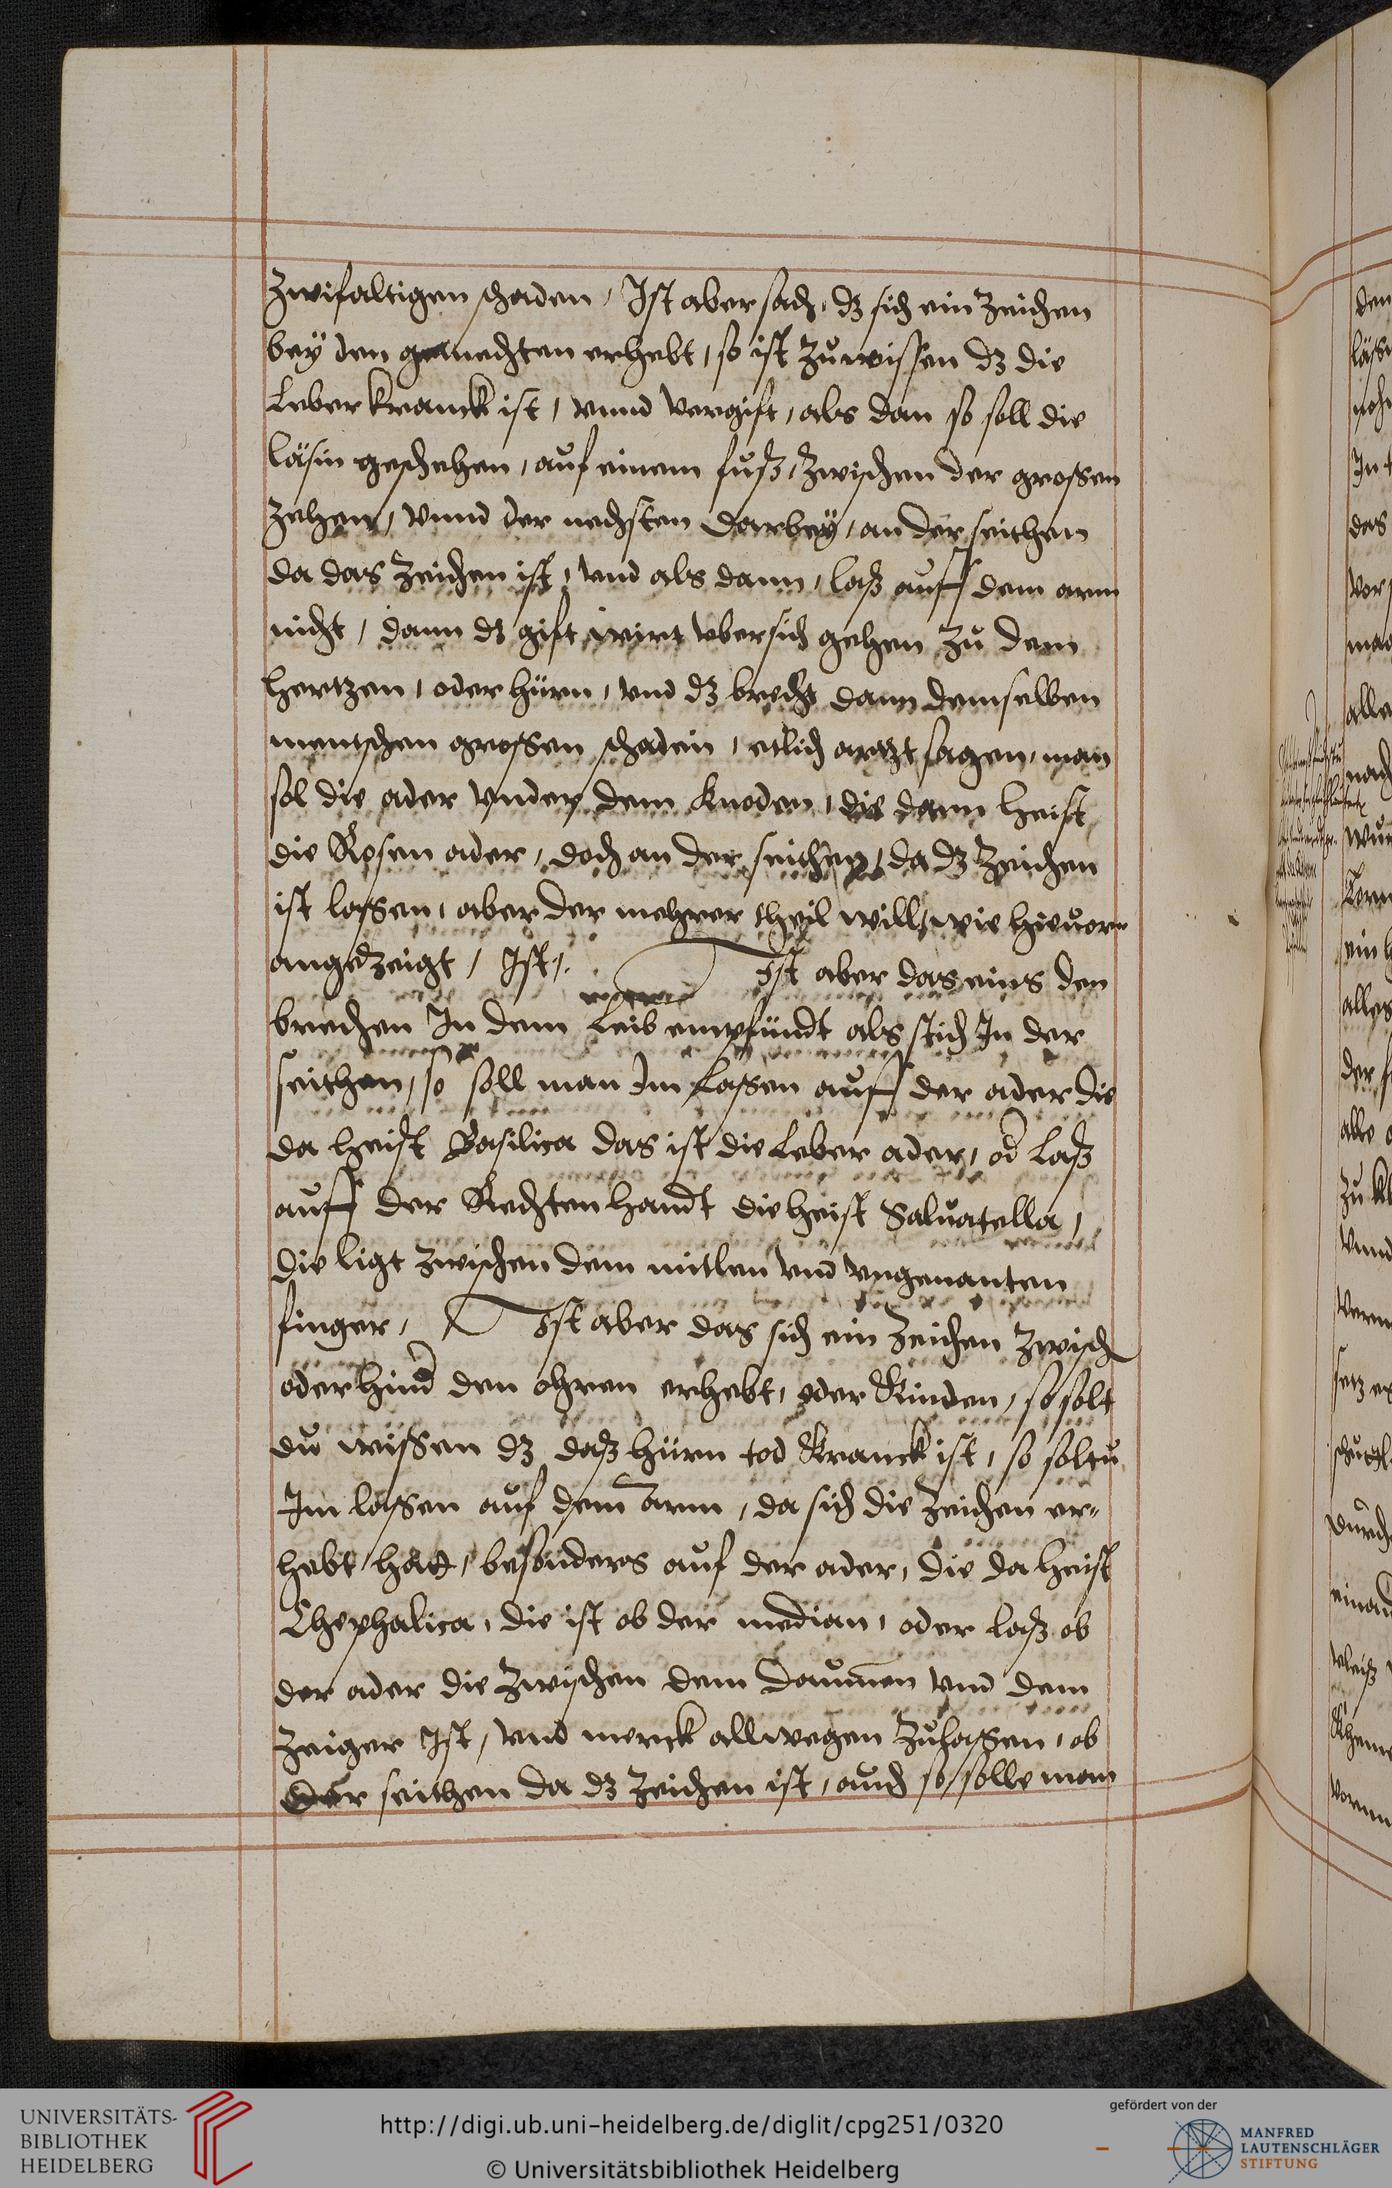 zwifaltigen schaden, Ist aber sach, dz sich ein zeichen
bey den gemechten erhebt, so ist zuwissen dz die
Leber kranck ist, vnnd vergift, als dan so soll die
läsin geschehen, auf einem fuß, zwischen der grossen
zehen, vnnd der nechsten darbey, an der seithen
da das zeichen ist, vnd als dann, laß auff dem arm
nicht, dann dz gift wirt vbersich gehen zu dem
hertzen, oder hürn, vnd dz brecht dann demselben
mentschen grossen schadein, etlich artzt sagen, man
sol die ader vnder dem knoden, die dann heist
die Rosen ader, doch an der seithen, da dz zeichen
ist lassen, aber der mehrer theil will, wie hieuorn
angedzeigt, Ist,. Ist aber das eins den
brechen In dem Leib empfündt als stich In der
seithen, so soll man Im lassen auff der ader die
da heist Basilica das ist die Leber ader, od laß
auff der Rechten handt die heist Saluatella,
die ligt zwischen dem mitlen vnd vngenanten
finger, Ist aber das sich ein zeichen zwisch
oder hind den ohren erhebt, oder Kinden, so solt
du wissen dz daß hürn tod kranck ist, so soltu
Im lassen auf dem arm, da sich die zeichen er-
hebt hatt, besonders auf der ader, die da heist
Chephalica, die ist ob der median, oder laß ob
der ader die zwischen dem daumen vnd dem
zeiger Ist, vnd merck allwegen zulassen, ob
der seithen da dz zeichen ist, auch so solle man
UNIVERSITÄTS-
BIBLIOTHEK
HEIDELBERG
http://digi.ub.uni-heidelberg.de/diglit/cpg251/0320
© Universitätsbibliothek Heidelberg
gefördert von der
MANFRED
LAUTENSCHLÄGER
STIFTUNG